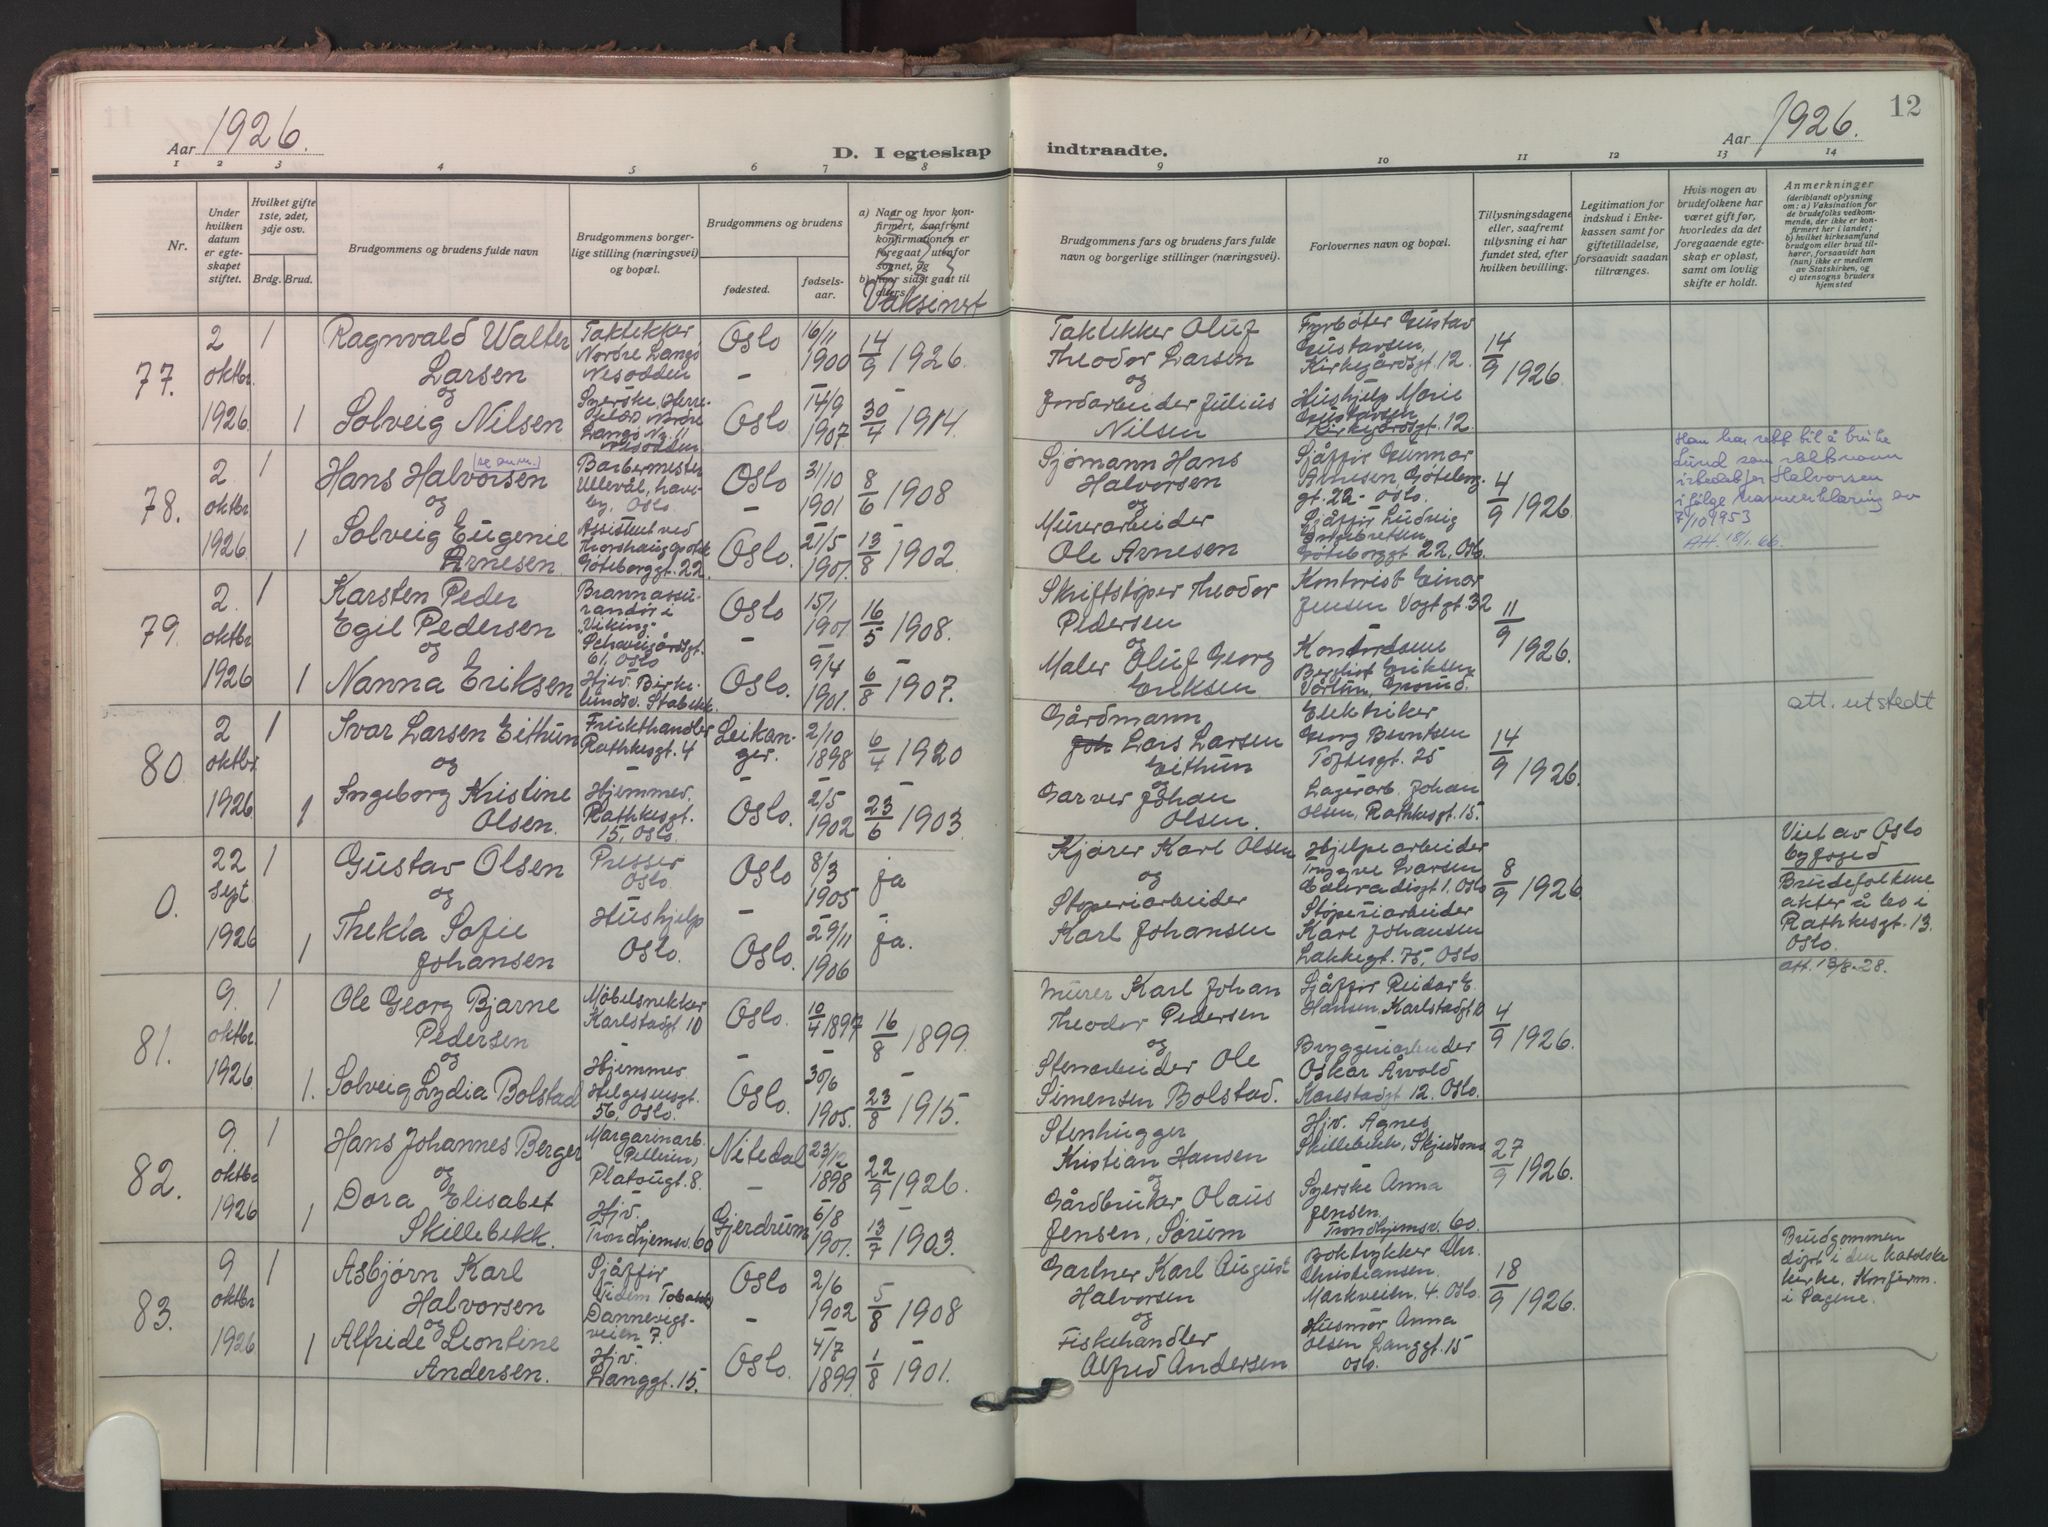 Aar 1926.
D. I egteskap
1 2 3 4 5 6 7 8
Nr.
Under hvilken datum er egteskapet stiftet.
Hvilket gifte 1ste, 2det, 3dje osv.
Brdg. Brud.
Brudgommens og brudens fulde navn
Brudgommens borgerlige stilling (næringsvei) og bopæl.
Brudgommens og brudens
fødested.
fødselsaar.
a) Naar og hvor konfirmert, saafremt konfirmationen er foregaat utenfor sognet, og
b) hvor sidst gaat til alters.
Vaksinert
77.
2
oktbr.
1926
1
1
Ragnvald Walter
Larsen
og
Solveig Nilsen
Taktekker
Nordre Langø
Nesodden
Oslo
Oslo
16/11
1900
14/9
1907
14/9 1926
30/4 1914.
78.
2
oktbr
1926
1
1
Hans Halvorsen
og
Solveig Eugenie
Arnesen
Barbermester
Ullevål, have-
by, Oslo
Assistent ved
Gøteborggt. 22
Oslo
Oslo.
31/10
1901
21/5
1901.
8/6 1908
13/8 1902
79.
2.
oktbr
1926
1
1
Karsten Peder
Egil Pedersen
og
Nanna Eriksen
Brannassu-
randør i
"Viking"
Schweigårdsgt.
61, Oslo
Hjv. Birke-
lundsv. Stabekk.
Oslo
Oslo.
15/1
1901.
9/4
1901.
16/5 1908.
6/8 1907.
80.
2
oktbr.
1926
1
1
Ivar Larsen Eithun
og
Ingeborg Kristine
Olsen.
Frukthandler
Rathkesgt. 4
Hjemmev.
Rathkesgt.
15, Oslo.
Leikan-
ger.
Oslo.
2/10
1898
2/5
1902
6/4 1920
23/6 1903.
0.
22
Sept
1926
1
1
Gustav Olsen
og
Thekla Sofie
Johansen
Presser
Oslo.
Hushjelp
Oslo.
Oslo
Oslo.
8/3
1905
29/11
1906
ja
ja.
81.
9.
oktbr.
1926
1
1.
Ole Georg Bjarne
Pedersen
og
Solveig Lydia Bolstad
Møbelsnekker
Karlstadgt 10
Hjemmev
Helgesensgt.
56, Oslo.
Oslo.
Oslo.
10/4 1897
30/6
1905.
16/8 1899.
23/8 1915.
82.
9.
oktbr
1926
1
1
Hans Johannes Berger
og
Dora Elisabet
Skillebekk.
Margarinarb.
(Pellerin,
Platougt. 8.
Hjv.
Trondhjemsv. 60
Nitedal
Gjerdrum
23/12
1898
6/8
1901.
22/9 1926.
13/7 1903.
83.
9
oktbr
1926
1
1
Asbjørn Karl
Halvorsen
og
Alfride Leontine
Andersen.
Sjåffør
Tidem. Tobakk
Dannevigs-
veien 7.
Hjv.
Langgt. 15.
Oslo
Oslo.
2/6
1902
4/7
1899.
5/8 1908
1/8 1901.
indtraadte.
Aar 1926.
12
9 10 11 12 13 14
Brudgommens fars og brudens fars fulde navn og borgerlige stillinger (næringsvei).
Forlovernes navn og bopæl.
Tillysningsdagene eller, saafremt tillysning ei har fundet sted, efter hvilken bevilling.
Legitimation for indskud i Enkekassen samt for giftetilladelse, forsaavidt saadan tiltrænges.
Hvis nogen av brudefolkene har været gift før, hvorledes da det foregaaende egteskap er opløst, samt om lovlig skifte er holdt.
Anmerkninger
(deriblandt oplysning om: a) Vaksination for de brudefolks vedkommende, der ikke er konfirmert her i landet;
b) hvilket kirkesamfund brudgom eller brud tilhører, forsaavidt han (hun) ikke er medlem av Statskirken, og
c) utensogns bruders hjemsted
Taktekker Oluf
Theodor Larsen
og
Jordarbeider Julius
Nilsen
Fyrbøter Gustav
Gustavsen,
Kirkegårdsgt. 12.
Hushjelp Marie
Gustavsen
Kirkegårdsgt. 12.
14/9 1926.
Sjømann Hans
Halvorsen
og
Murerarbeider
Ole Arnesen
Sjåffør Gunnar
Arnesen, Gøteborg-
gt. 22 - Oslo.
Sjåffør Ludvig
Engebretsen,
Gøteborggt 22. Oslo.
4/9 1926.
Han har rett til å bruke
Lund som slektsnavn
istedetfor Halvorsen
ifølge navneerklæring av
7/10 1953
Att. 18/1. 66.
Skriftstøper Theodor
Pedersen
og
Maler Oluf Georg
Eriksen
Kontorist Einar
Jensen Vogtgt. 32
Kontordame
Bergliot Eriksen
11/9 1926.
Gårdmann
Lars Larsen
Eithun
og
Garver Johan
Olsen.
Elektriker
Georg Berntsen
Toftesgt. 25
Lagerarb. Johan
Olsen, Rathkesgt. 15.
14/9 1926.
att. utstedt
Kjører Karl Olsen
og
Støperiarbeider
Karl Johansen
Hjelpearbeider
Trygve Larsen
Støperiarbeider
Karl Johansen
Lakkegt. 75, Oslo
8/9 1926.
Viet av Oslo
byfogd
Brudefolkene
akter å bo i
Rathkesgt. 13.
Oslo.
att. 13/8-28.
Murer Karl Johan
Theodor Pedersen
og
Stenarbeider Ole
Simensen Bolstad.
Sjåffør Reidar E.
Hansen, Karlstadgt 10
Bryggeriarbeider
Oskar Arvold
Karlstadgt 12. Oslo.
4/9 1926.
Stenhugger
Kristian Hansen
og
Gårdbruker Olaus
Jensen, Sørum
Hjv. Agnes
Skillebekk, Skjedsmo
Syerske Anna
Jensen.
Trondhjemsv. 60.
27/9 1926.
Gartner Karl August
Halvorsen
og
Fiskehandler
Alfred Andersen
Boktrykker Chr.
Christiansen,
Markveien. 4. Oslo.
Husmor Anna
Olsen Langgt. 15
Oslo.
18/9 1926.
Brudgommen
døpt i den katolske
kirke. Konfirm.